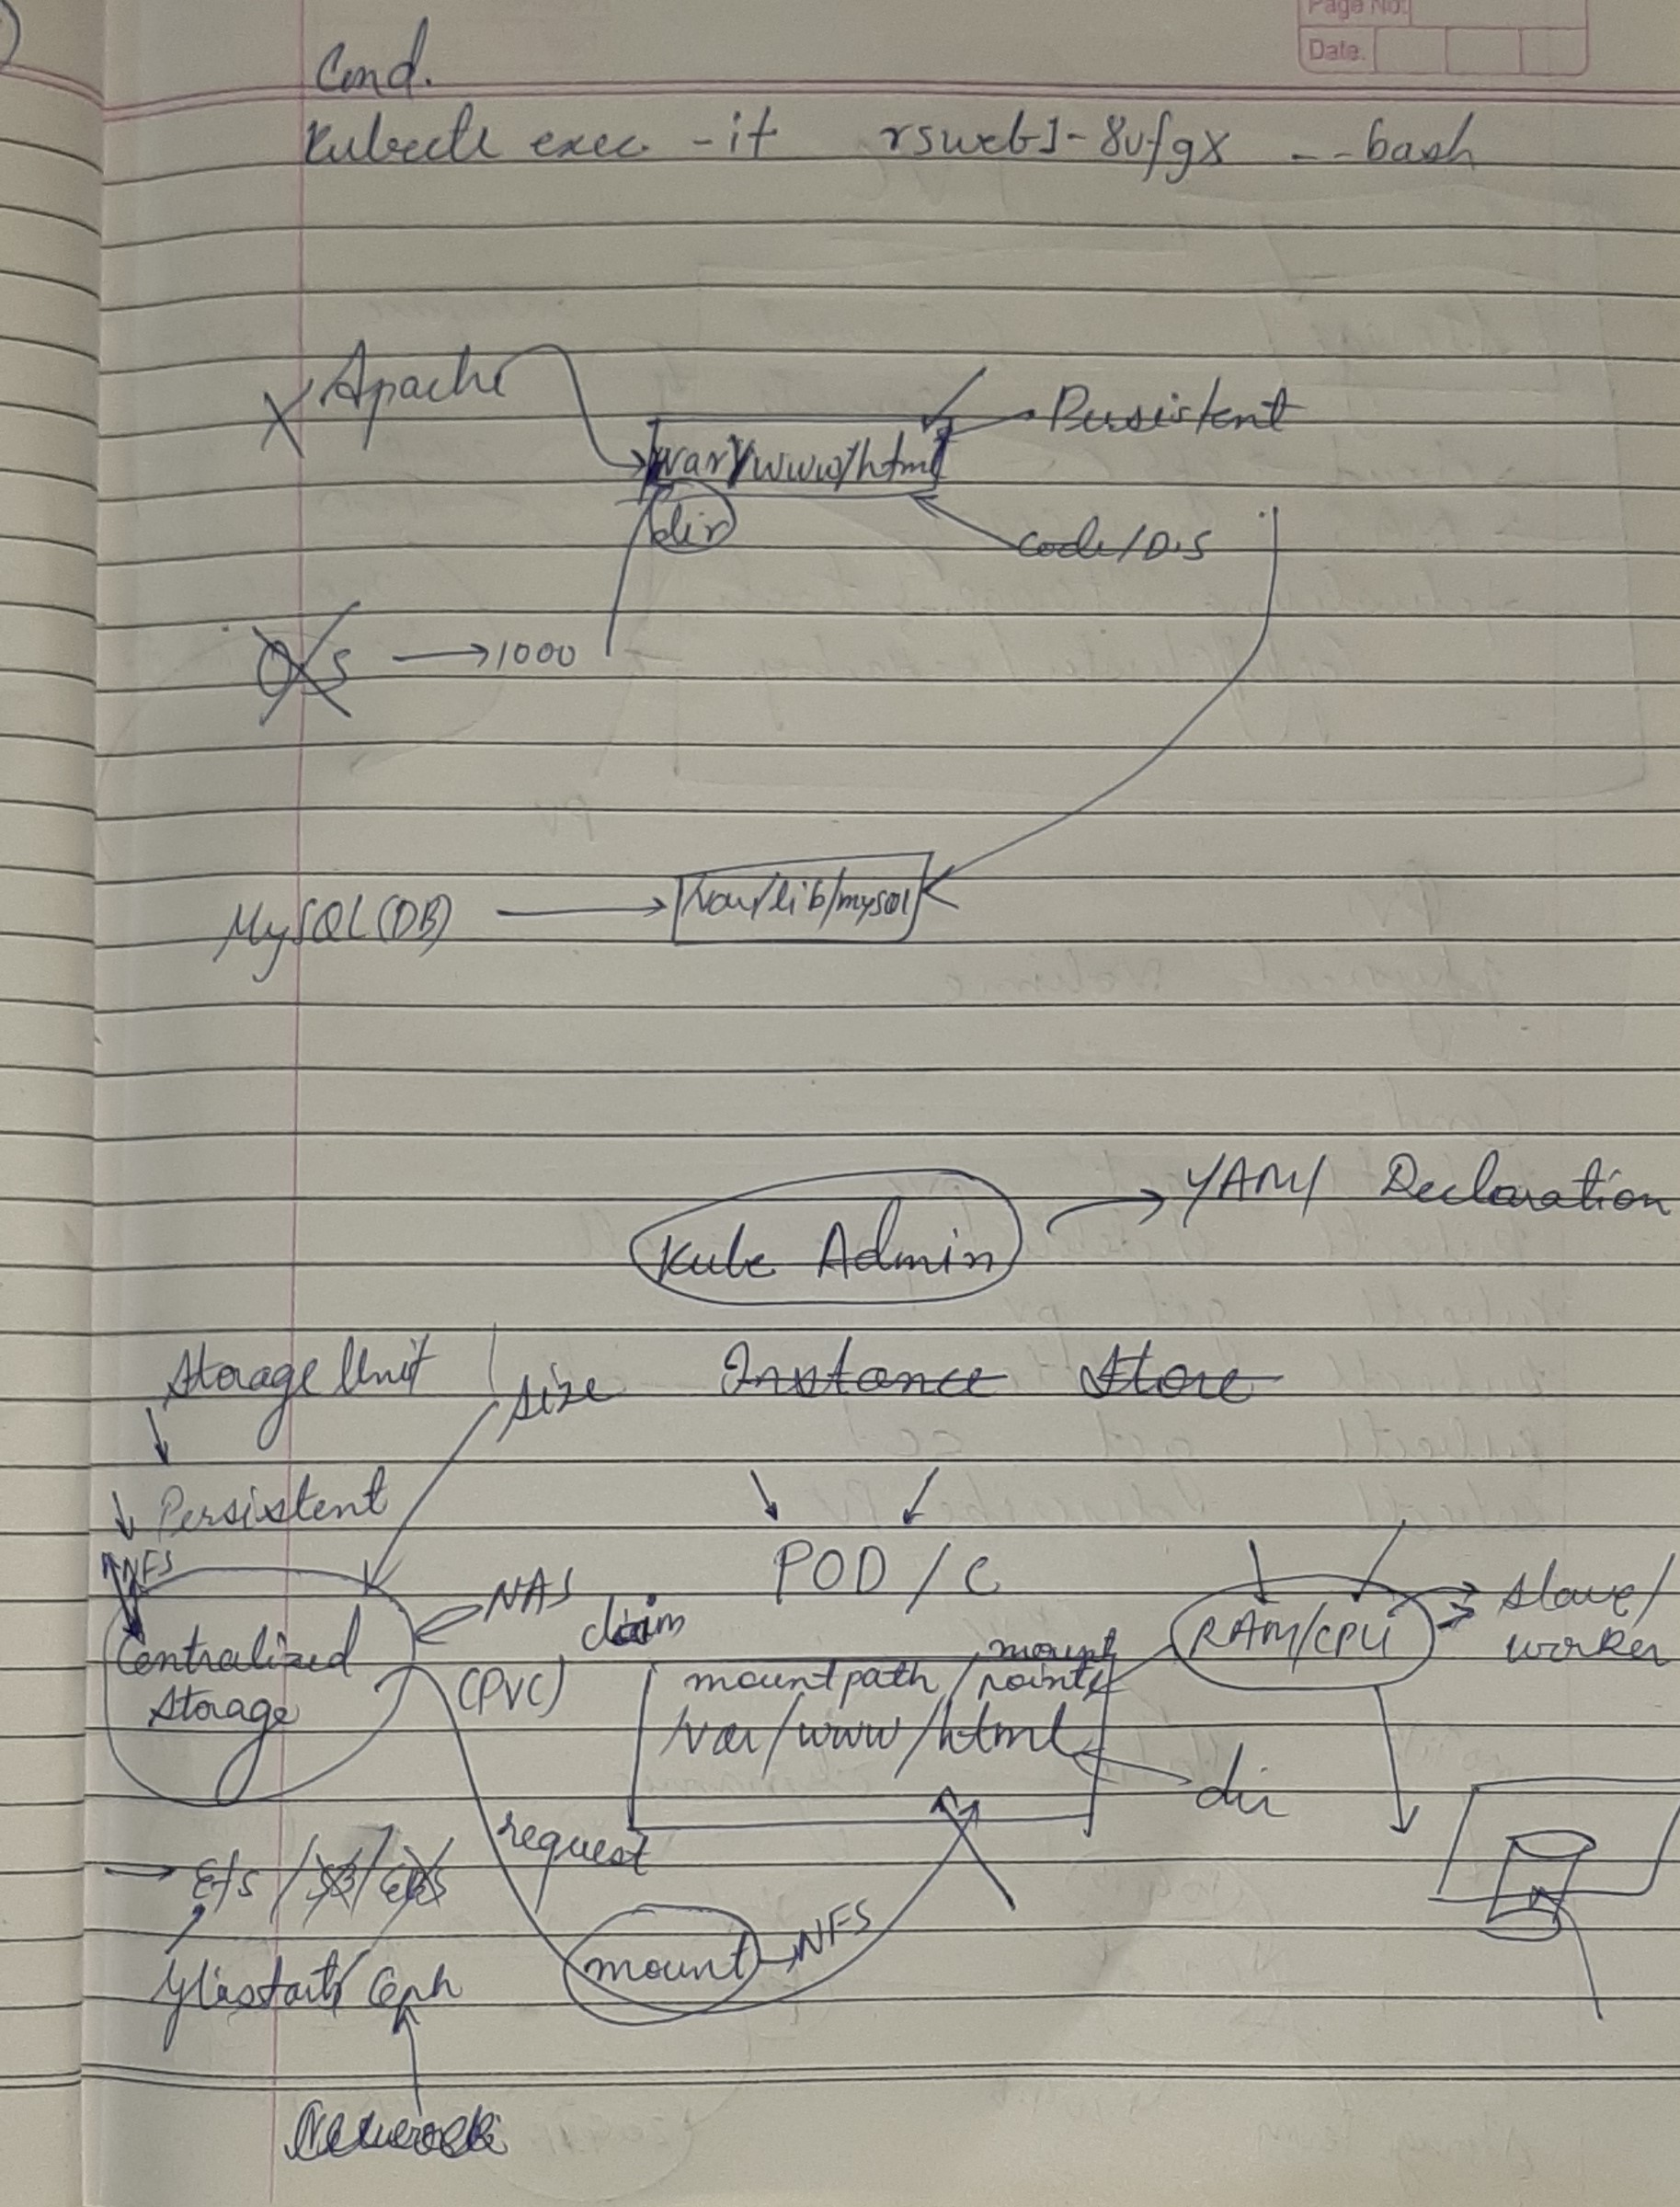 Page No.
Date.
Cmd.
Kubectl exec -it rsweb1-8vfgx --bash
Apache
/var/www/html
Persistent
dir
code/D.S
O/S → 1000
MySQL(DB) → /var/lib/mysql
Kube Admin → YAML Declaration
Storage Unit / size Instance Store
Persistent
NFS
POD / C
NAS
claim
RAM/CPU → slave/
worker
Centralized
Storage
(PVC)
mount path / mount
point
/var/www/html
dir
request
→ EFS / S3 / EBS
mount → NFS
Ceph
Network